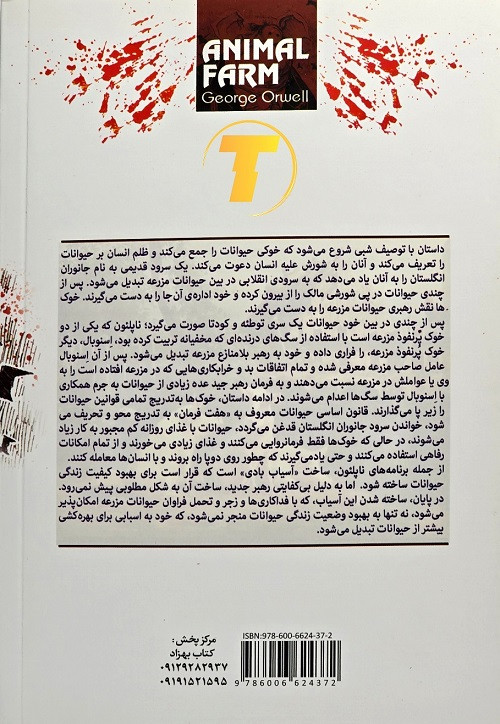 ANIMAL
FARM
George Orwell
T
داستان با توصیف شبی شروع می‌شود که خوکی حیوانات را جمع می‌کند و ظلم انسان بر حیوانات
را تعریف می‌کند و آنان را به شورش علیه انسان دعوت می‌کند. یک سرود قدیمی به نام جانوران
انگلستان را به آنان یاد می‌دهد که به سرودی انقلابی در بین حیوانات مزرعه تبدیل می‌شود. پس از
چندی حیوانات در پی شورشی مالک را از مزرعه بیرون کرده و خود اداره‌ی آن جا را به دست می‌گیرند. خوک
ها نقش رهبری حیوانات مزرعه را به دست می‌گیرند.
پس از چندی در بین خود حیوانات یک سری توطئه و کودتا صورت می‌گیرد؛ ناپلئون که یکی از دو
خوک پُرنفوذ مزرعه است با استفاده از سگ‌های درنده‌ای که مخفیانه تربیت کرده بود، اِسنوبال، دیگر
خوک پُرنفوذ مزرعه، را فراری داده و خود به رهبر بلامنازع مزرعه تبدیل می‌شود. پس از آن اِسنوبال
عامل صاحب مزرعه معرفی شده و تمام اتفاقات بد و خرابکاری‌هایی که در مزرعه افتاده است را به
وی یا عواملش در مزرعه نسبت می‌دهند و به فرمان رهبر جدید عده زیادی از حیوانات به جرم همکاری
با اِسنوبال توسط سگ‌ها اعدام می‌شوند. در ادامه داستان، خوک‌ها به‌تدریج تمامی قوانین حیوانات
را زیر پا می‌گذارند. قانون اساسی حیوانات معروف به «هفت فرمان» به تدریج محو و تحریف می
شود، خواندن سرود جانوران انگلستان قدغن می‌گردد، حیوانات با غذای روزانه کم مجبور به کار زیاد
می‌شوند، در حالی که خوک‌ها فقط فرمانروایی می‌کنند و غذای زیادی می‌خورند و از تمام امکانات
رفاهی استفاده می‌کنند و حتی یادمی‌گیرند که چطور روی دوپا راه بروند و با انسان‌ها معامله کنند.
از جمله برنامه‌های ناپلئون، ساخت «آسیاب بادی» است که قرار است برای بهبود کیفیت زندگی
حیوانات ساخته شود. اما به دلیل بی‌کفایتی رهبر جدید، ساخت آن به شکل مطلوبی پیش نمی‌رود.
در پایان، ساخته شدن این آسیاب، که با فداکاری‌ها و زجر و تحمل فراوان حیوانات مزرعه امکان‌پذیر
می‌شود، نه تنها به بهبود وضعیت زندگی حیوانات منجر نمی‌شود، که خود به اسبابی برای بهره‌کشی
بیشتر از حیوانات تبدیل می‌شود.
مرکز پخش:
کتاب بهزاد
۰۹۱۲۹۲۸۲۹۳۷
۰۹۱۹۱۵۲۱۵۹۵
ISBN:978-600-6624-37-2
9 786006 624372